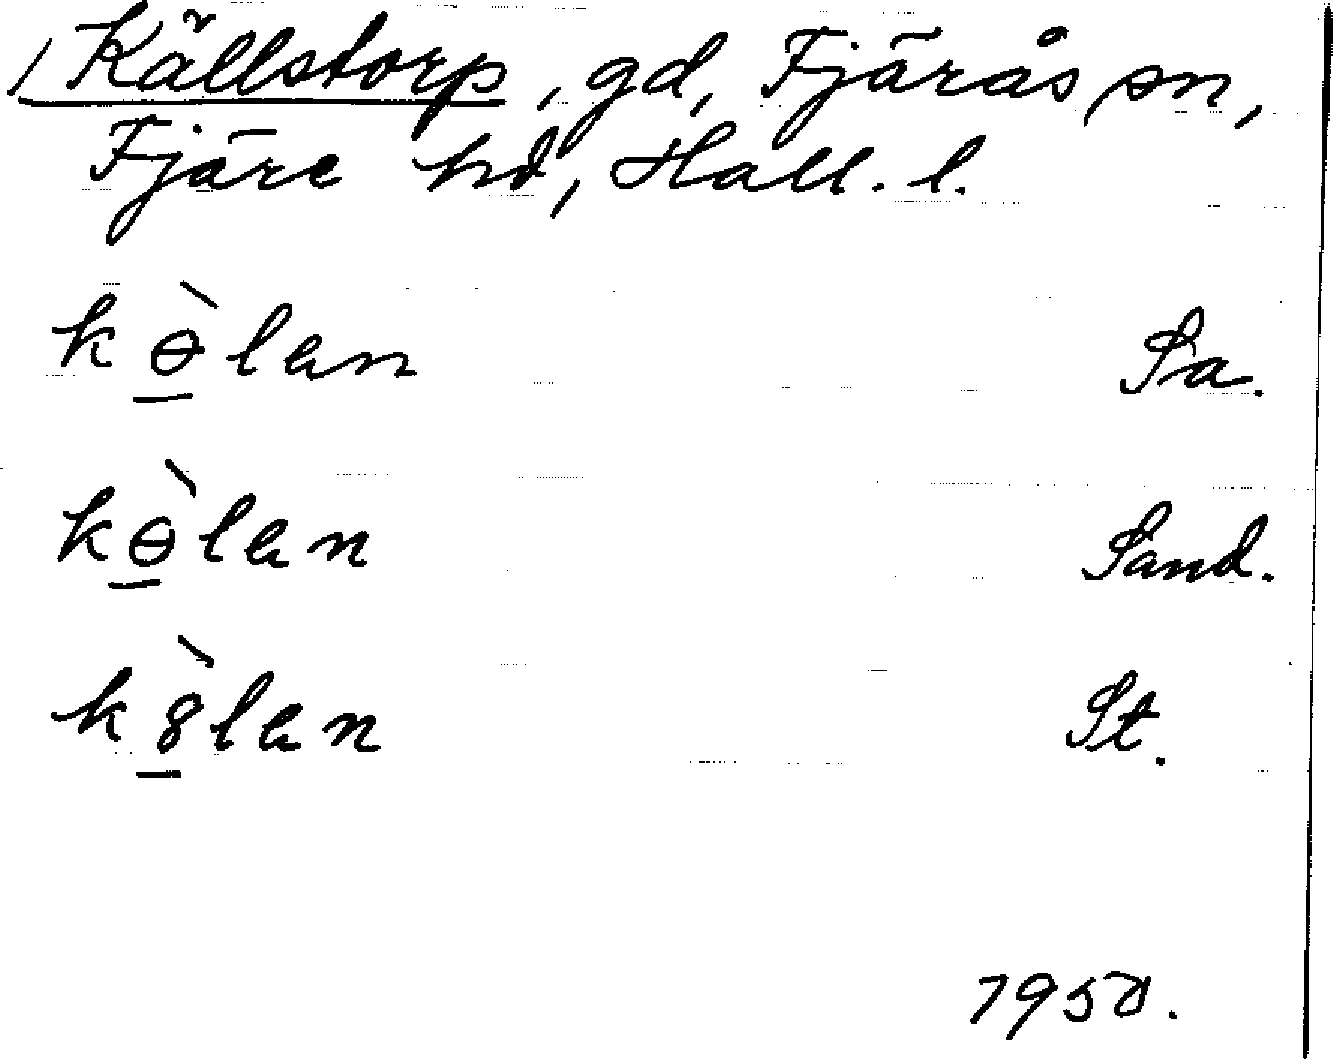 Källstorp, gd, Fjärås sn,
Fjäre hd, Hall. l.
kɵ̀lan Sa.
kɵ̀lan Sand.
k8̀lan St.
1950.